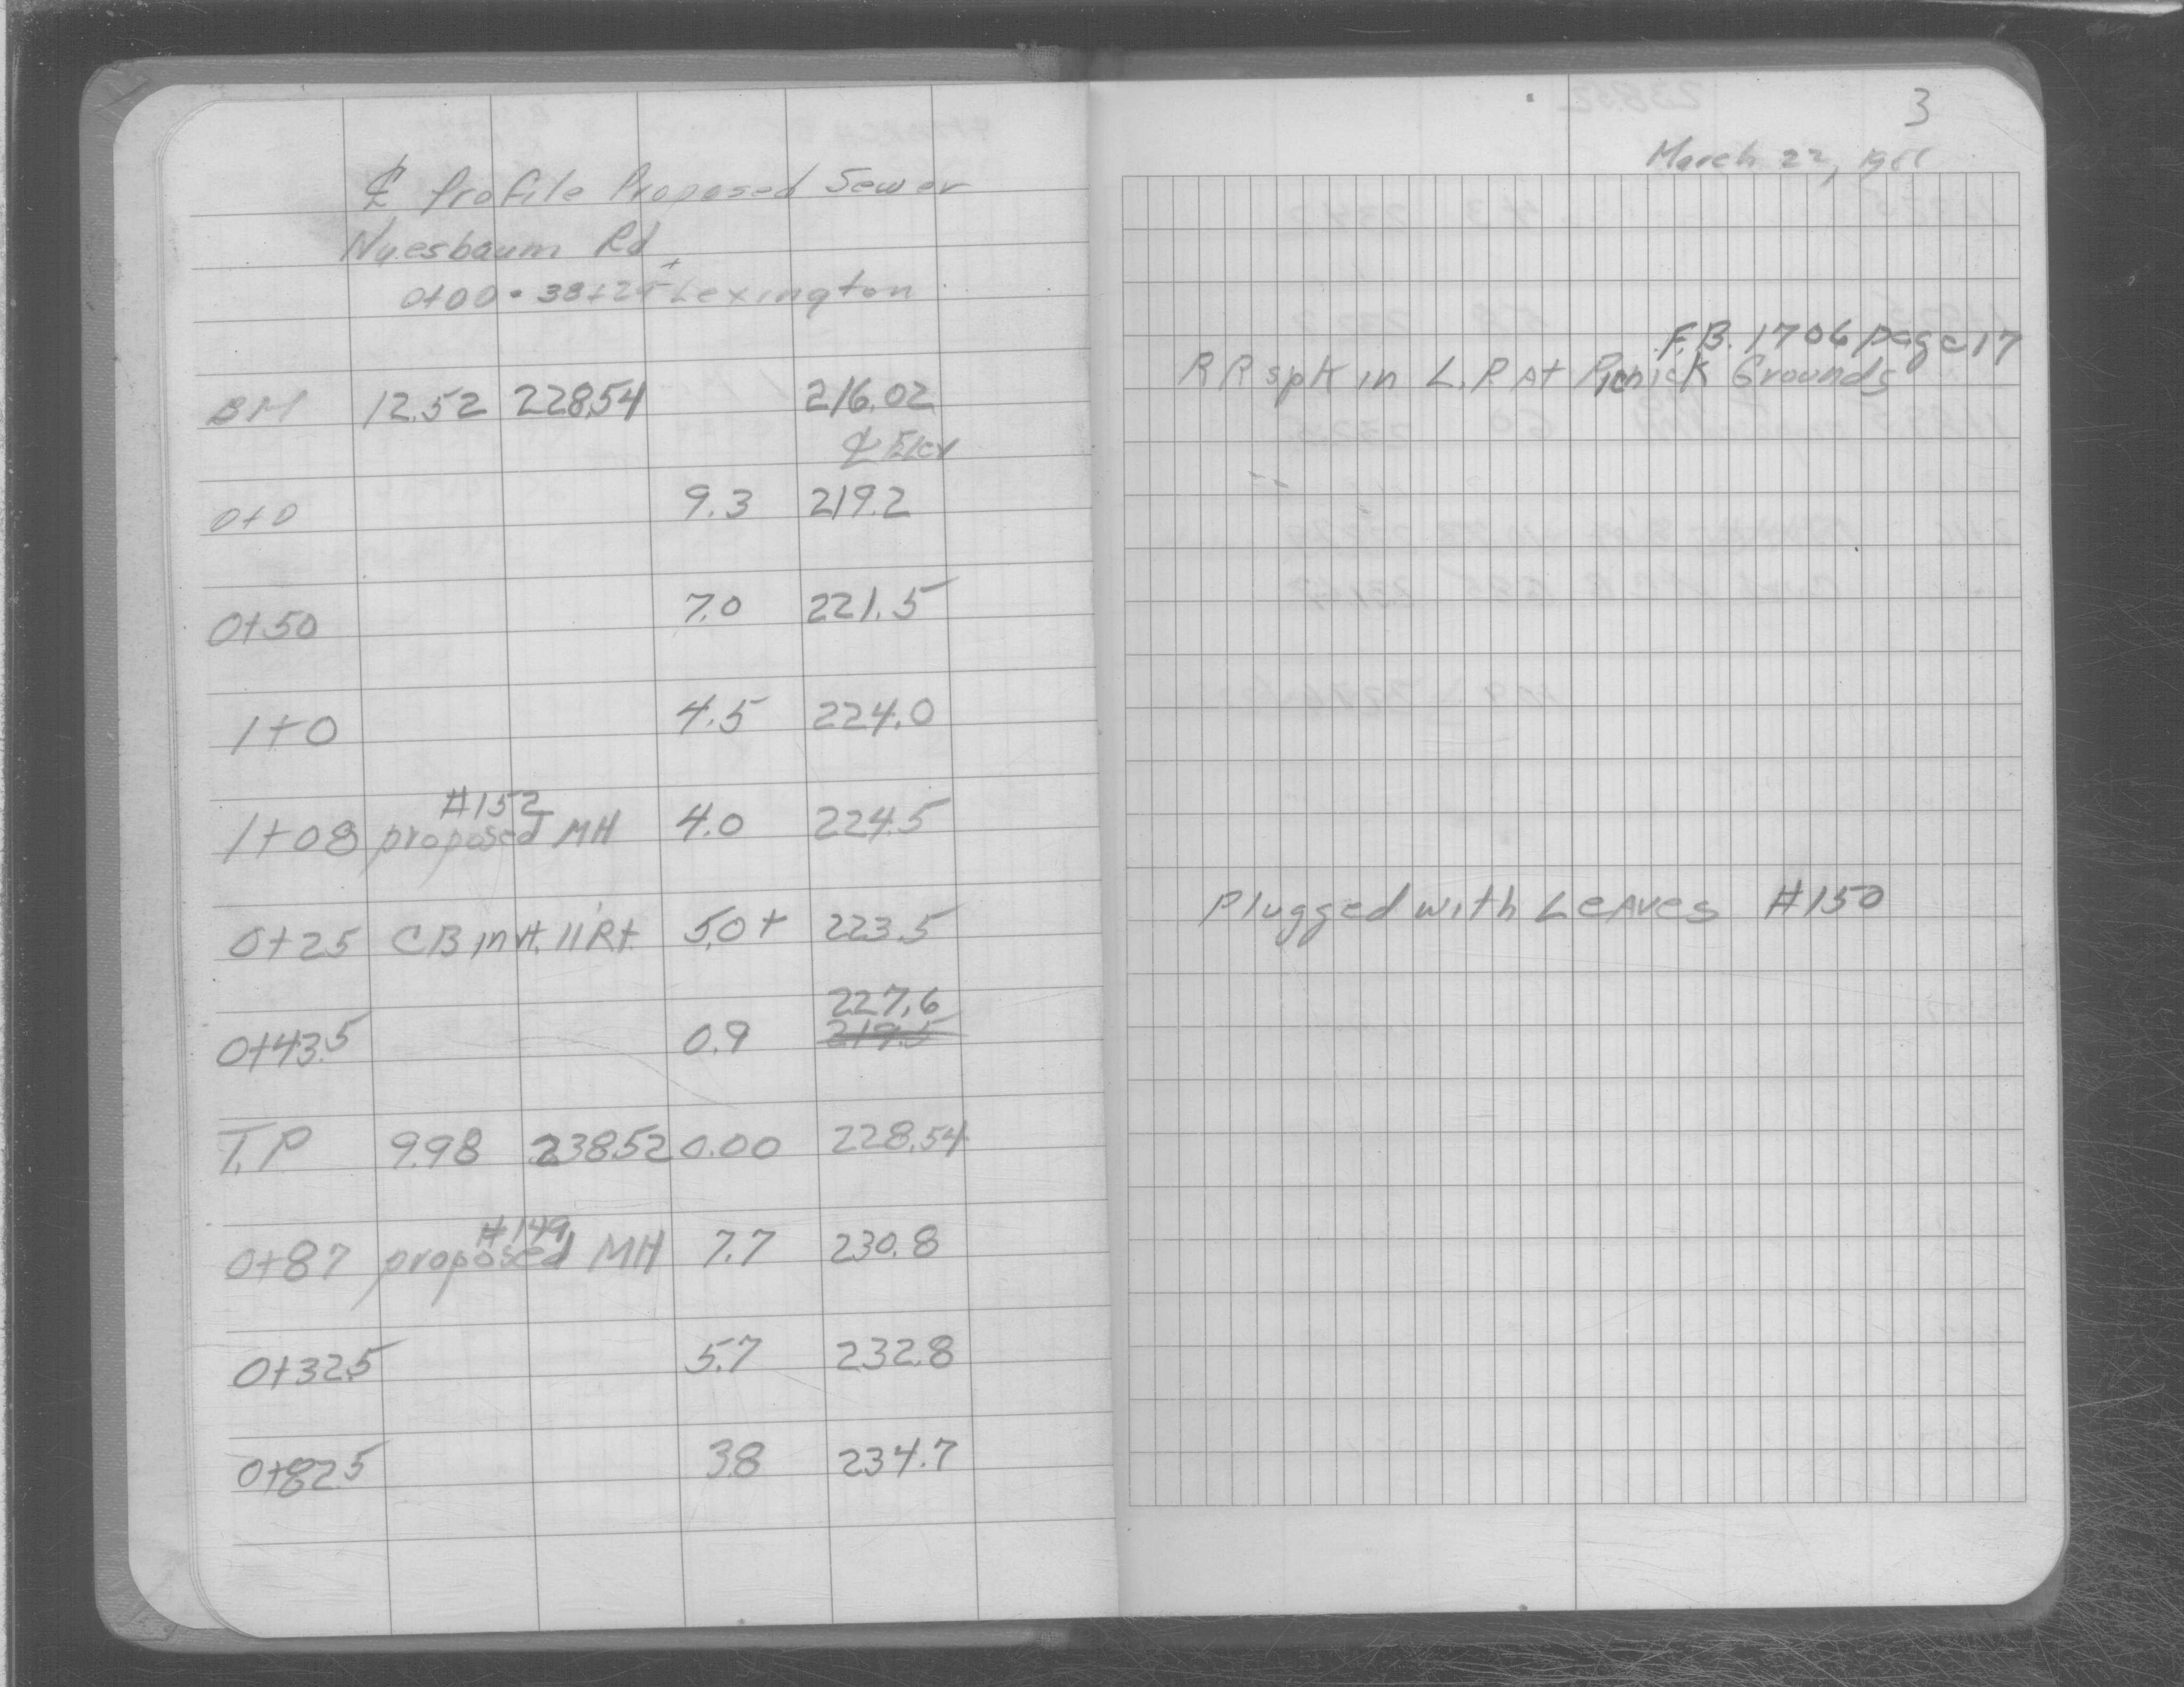 ℄ Profile Proposed Sewer
Nuesbaum Rd
0+00 = 38+25± Lexington
BM 12.52 228.54 216.02
℄ Elev
0+0 9.3 219.2
0+50 7.0 221.5
1+0 4.5 224.0
#152
1+08 proposed MH 4.0 224.5
0+25 CB invt. 11' Rt. 5.0+ 223.5
227.6
0+43.5 0.9 219.5
T.P 9.98 238.52 0.00 228.54
#149
0+87 proposed MH 7.7 230.8
0+32.5 5.7 232.8
0+82.5 3.8 234.7
3
March 22,
F.B. 1706 page 17
RR spk in L.P. At Picnick Grounds
Plugged with Leaves #150